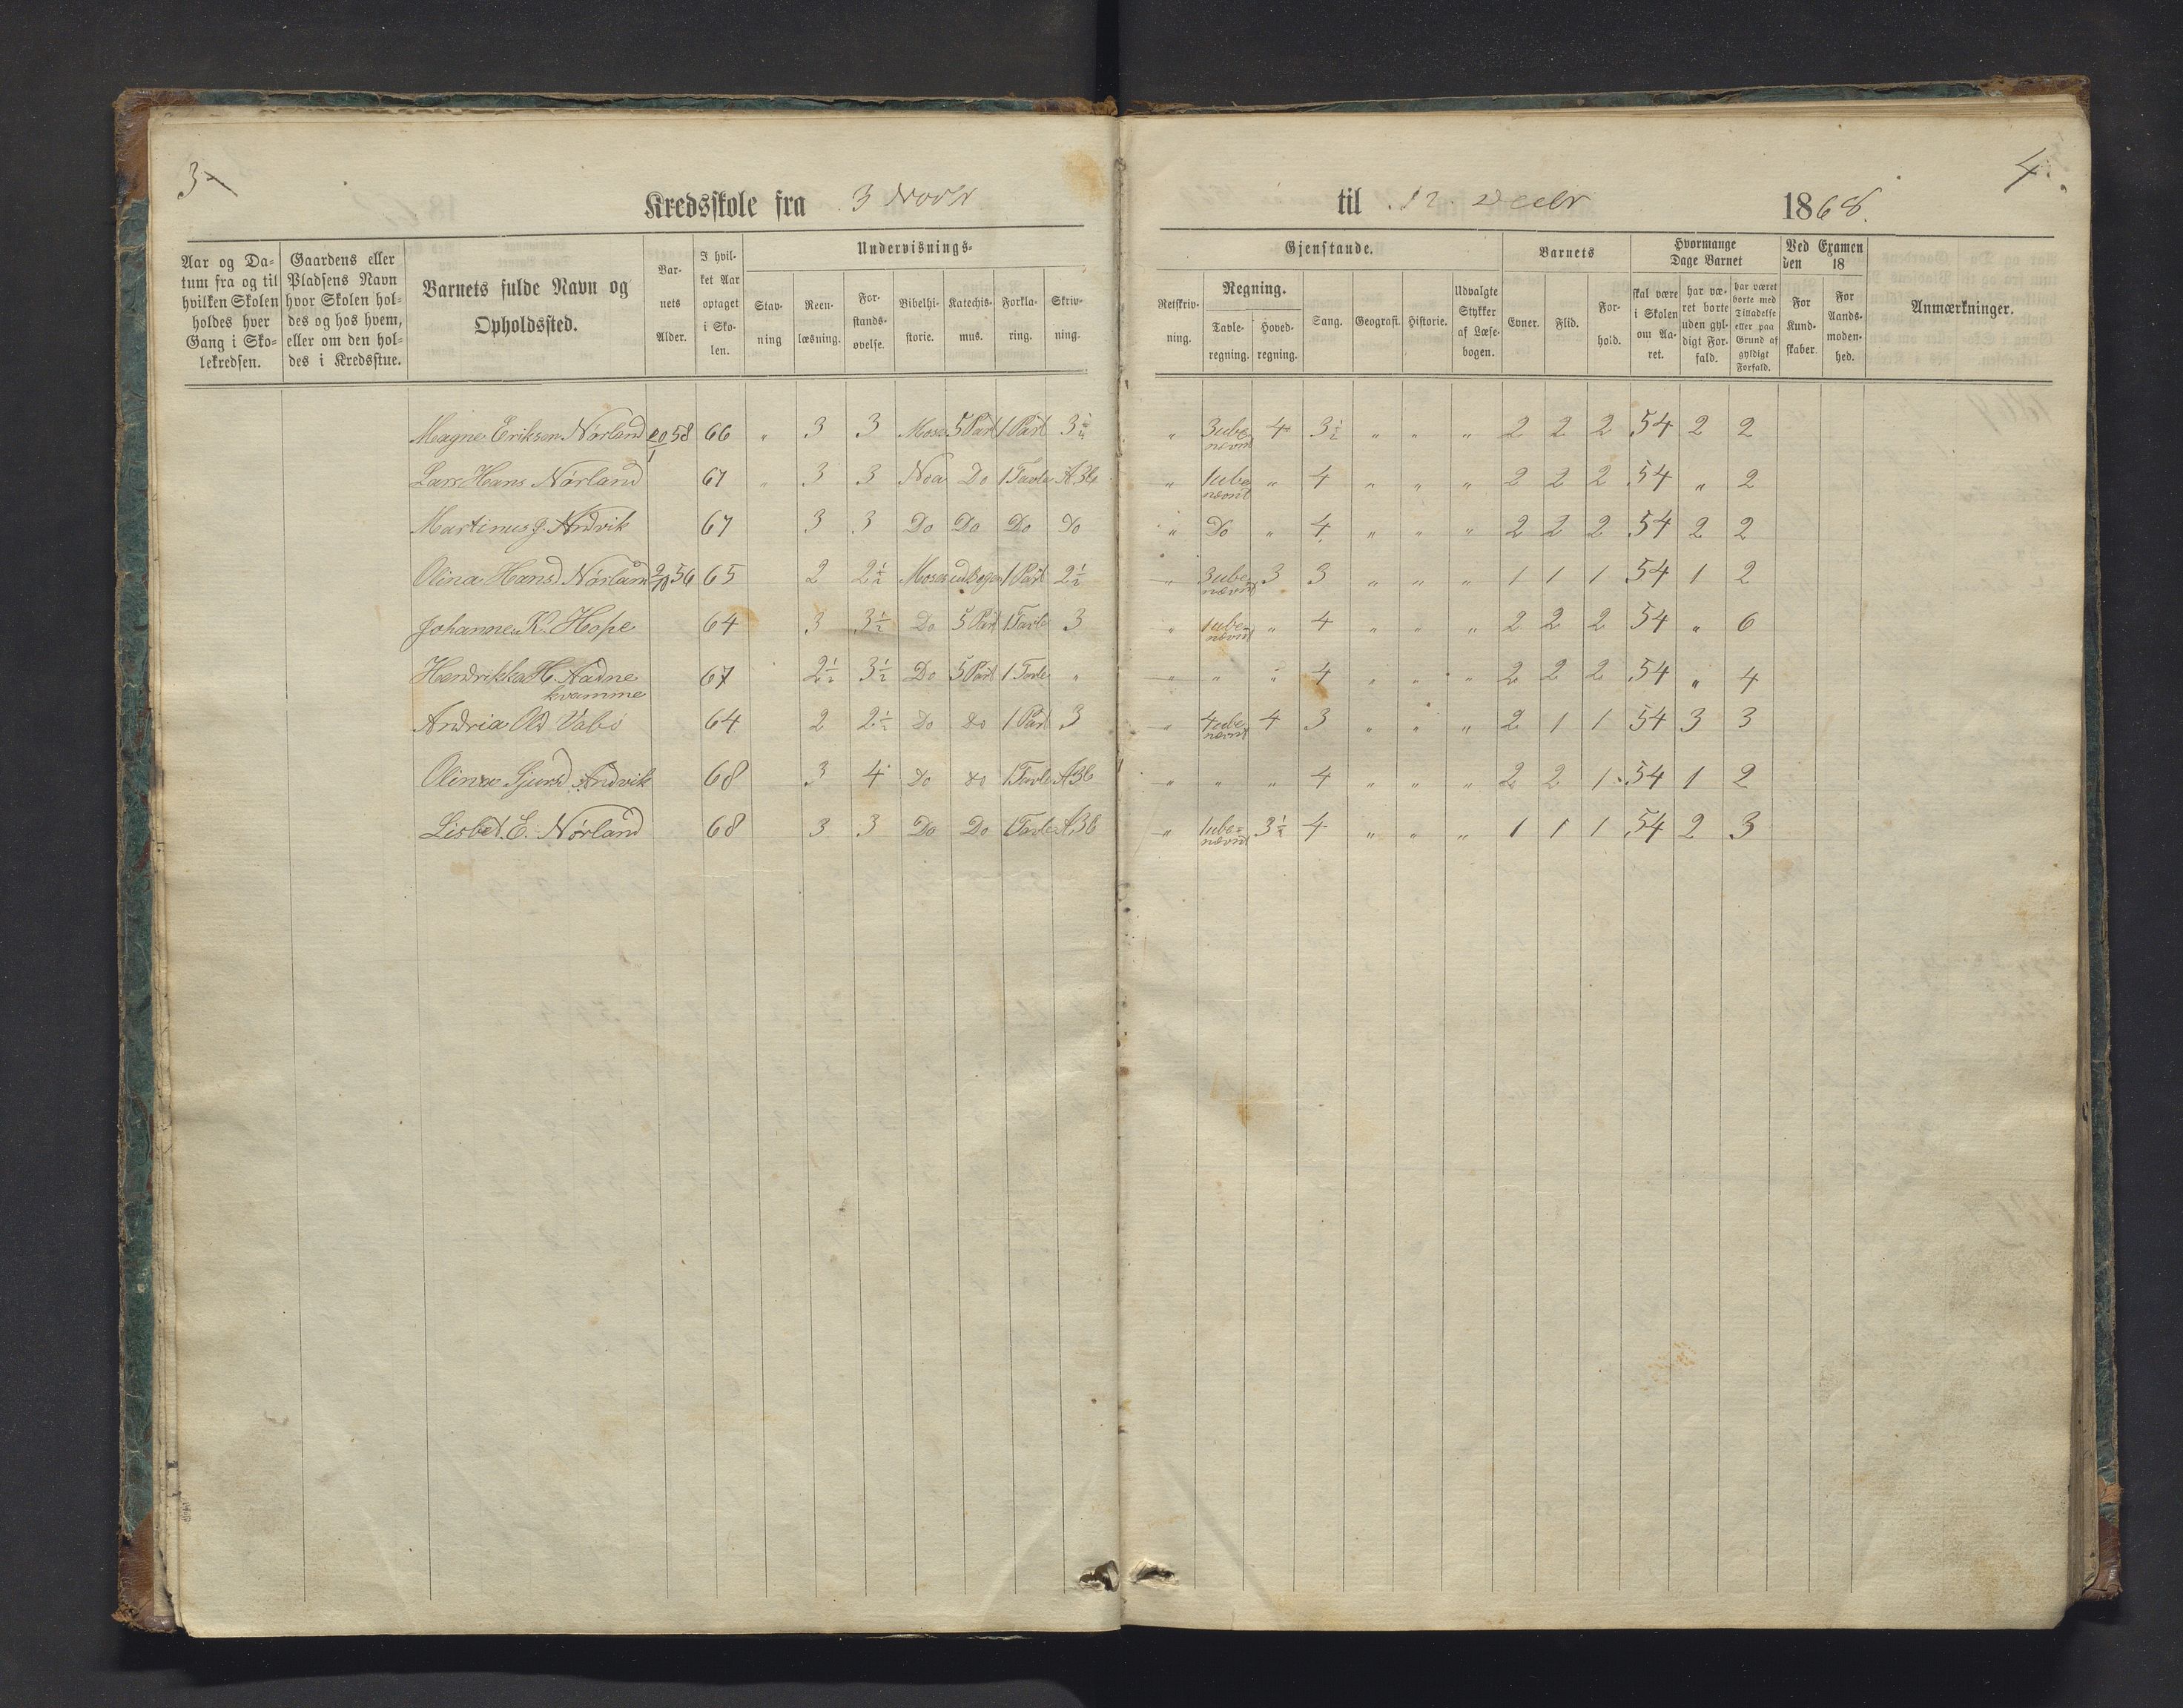 3
4.
Kredsskole fra 3 Novbr til 12 Decbr 1868.
Aar og Datum fra og til hvilken Skolen holdes hver Gang i Skolekredsen.
Gaardens eller Pladsens Navn hvor Skolen holdes og hos hvem, eller om den holdes i Kredsstue.
Barnets fulde Navn og Opholdssted.
Barnets Alder.
I hvilket Aar optaget i Skolen.
Undervisnings-
Stavning
Reenlæsning.
Forstandsøvelse.
Bibelhistorie.
Katechismus.
Forklaring.
Skrivning.
Gjenstande.
Retskrivning.
Regning.
Tavleregning.
Hovedregning.
Sang.
Geografi.
Historie.
Udvalgte Stykker af Læsebogen.
Barnets
Evner.
Flid.
Forhold.
Hvormange Dage Barnet
skal være i Skolen om Aaret.
har været borte uden gyldigt Forfald.
har været borte med Tilladelse eller paa Grund af gyldigt Forfald.
Ved Examen den 18
For Kundskaber.
For Aandsmodenhed.
Anmærkninger.
Magne Eriksen Nørland 20/1 58 66 " 3 3 Mose 5 Part 1 Part 3½ " 3 ube nævnt 4 3½ " " " 2 2 2 54 2 2
Lars Hans Nørland 67 " 3 3 Noa Do 1 Tavle A36 " 1 ube nævnt " 4 " " " 2 2 2 54 " 2
Martinus J. Andvik 67 3 3 Do Do Do Do " Do " 4 " " " 2 2 2 54 2 2
Olina Hansd Nørland 56 65 2 2½ Moses 1 Part 2½ " 3 ube nævnt 3 3 " " " 1 1 1 54 1 2
Johanne K. Hope 64 3 3½ Do 5 Part 1 Tavle 3 " 1 ube nævnt " 4 " " " 2 2 2 54 " 6
Hendrikka H. Aadne kvamme 67 2½ 3½ Do 5 Part 1 Tavle " " " " 4 " " " 2 2 2 54 " 4
Andria Old Vabø 64 2 2½ Do do 1 Part 3 " 4 ube nævnt 4 3 " " " 2 1 1 54 3 3
Olina Sjursd Andvik 68 3 4 do do 1 Tavle A36 " " " 4 " " " 2 2 1 54 1 2
Lisbet E. Nørland 68 3 3 Do Do 1 Tavle A36 " 1 ube nævnt 3½ 4 " " " 1 1 1 54 2 3